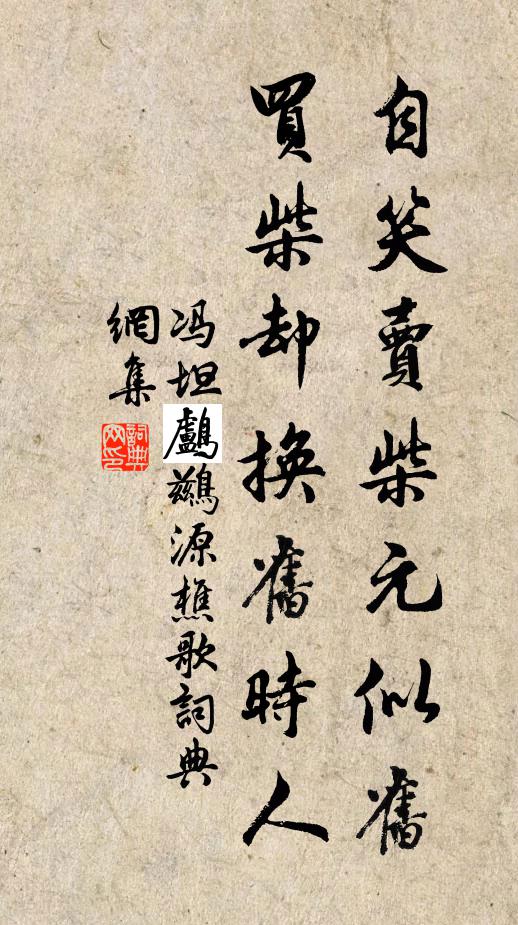 自笑賣柴元似舊
買柴却換舊時人
冯坦鸕鷀源樵歌詞典
網集
詞典
网印